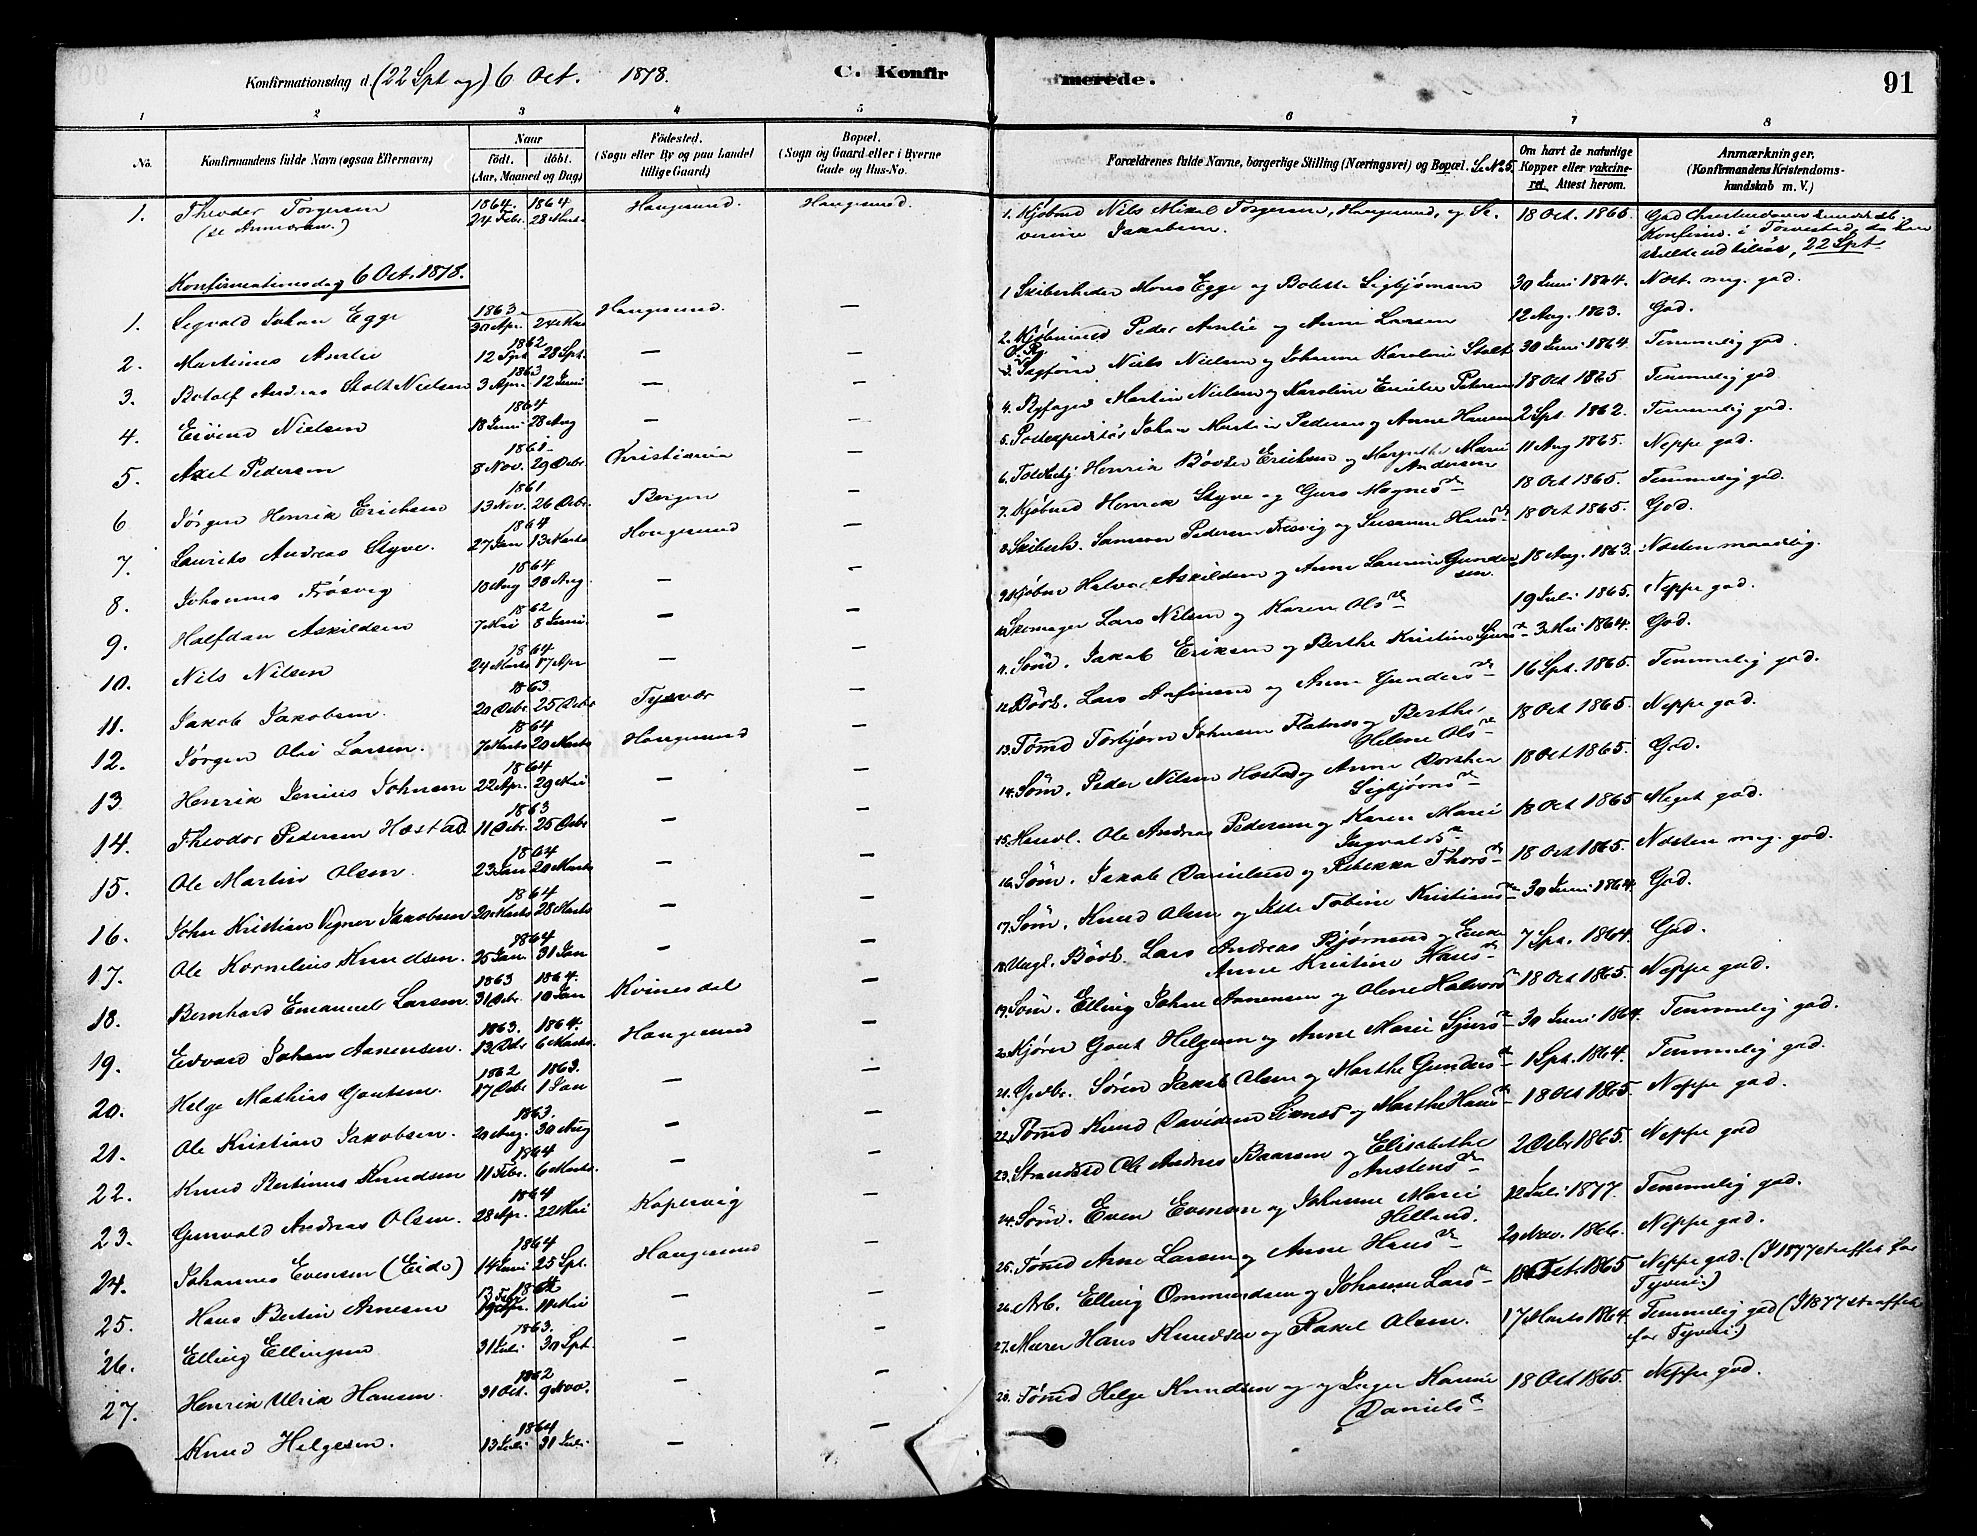 Konfirmationsdag d. (22 Spt og) 6 Oct. 1878.
C. Konfirmerede.
91
1 2 3 4 5 6 7 8
No.
Konfirmandens fulde Navn (ogsaa Efternavn)
Naar
födt. döbt.
(Aar, Maaned og Dag)
Födested.
(Sogn eller By og paa Landet tillige Gaard)
Bopæl.
(Sogn og Gaard eller i Byerne Gade og Hus-No.
Forældrenes fulde Navne, borgerlige Stilling (Næringsvei) og Bopæl. Se No 5.
Om havt de naturlige Kopper eller vakcineret. Attest herom.
Anmærkninger.
(Konfirmandens Kristendomskundskab m. V.)
1. Theodor Torgersen 1864. 24 Febr. 1864 28 Marts Haugesund. Haugesund.
1. Kjøbmd Nils Mikal Torgersen, Haugesund, og Severine Jakobsen. 18 Oct. 1865. God Konfirm. i Torvestad, 22 Spt
Konfirmationsdag 6 Oct. 1878.
1. Sigvald Johan Egge 1863 30 Apr. 24 Mai Haugesund. —
1 Skibsreder Mons Egge og Bolette Sigbjørnsen 30 Juni 1864. Næst. meg. god.
2. Martinus Amlie 1862 12 Spt. 28 Spt. — —
2. Kjøbmand Peder Amlie og Anne Larsen 12 Aug. 1863. God.
3. Botolf Andreas Stolt Nielsen 1863 3 Apr. 12 Juni — —
3. Sagfører Niels Nielsen og Johanne Karoline Stolt 30 Juni 1864. Temmelig god.
4. Eivind Nielsen 1864 18 Juni 28 Aug — —
4. Byfoged Martin Nielsen og Karoline Emilie Petersen 18 Oct 1865 Temmelig god
5. Axel Pedersen 1861. 8 Nov. 29 Decbr. Kristiania —
5. Postexpeditør Johan Martin Pedersen og Anne Hansen 2 Spt. 1862. Temmelig god.
6 Jørgen Henrik Erichsen 1861 13 Nov. 26 Decbr. Bergen —
6. Toldbetj Henrik Bövter Erichsen og Margrethe Marie Andersen 11 Aug 1865. Neppe god.
7. Laurits Andreas Styve. 1864 27 Jan 13 Marts Haugesund —
7. Kjøbmd Henrik Styve og Guro Magnesdr 18 Oct 1865. Temmelig god.
8. Johannes Frösvig 1864 10 Aug 28 Aug. — —
8. Skibsk. Samson Pedersen Frösvig og Susanne Hansdr 18 Oct 1865. God.
9. Halfdan Askildsen 1862 7 Mai 8 Juni. — —
9. Kjøbm Halvor Askildsen og Anne Laurine Gundersen. 18 Aug. 1863. Næsten maadelig.
10. Nils Nilsen 1864 24 Marts 17 Apr — —
10. Skomager Lars Nilsen og Karen Olsdr 19 Juli 1865. Neppe god.
11. Jakob Jakobsen. 1863 20 Decbr. 25 Decbr Tysvær —
11. Søm. Jakob Eriksen og Berthe Kristine Sjursdr 3 Mai 1864. God.
12. Jørgen Olai Larsen. 1864 7 Marts 20 Marts Haugesund —
12. Lars Anfinsen og Anne Gundersdr 16 Spt. 1865. Temmelig god.
13 Henrik Johnsen 1864 22 Apr. 29 Mai — —
13. Tømd Torbjørn Johnsen Flatnes og Berthe Helene Olsdr 18 Oct 1865. Neppe god.
14. Theodor Pedersen Hostad 1863 11 Decbr. 25 Decbr — —
14. Søm. Peder Nilsen Hostad og Anne Dorthea Sigbjørnsdr 18 Oct 1865. God.
15. Ole Martin Olsen. 1864 23 Jan 20 Marts — —
15. Handl. Ole Andreas Pedersen og Karen Marie Ingvaldsdr 18 Oct 1865 Meget god.
16. John Kristian Vigner Jakobsen 1864 20 Marts 28 Marts — —
16. Søm. Jakob Danielsen og Rebekka Thorsdr 18 Oct 1865. Næsten meg. god.
17. Ole Kornelius Knudsen. 1864 25 Jan. 31 Jan — —
17. Søm. Knud Olsen og Jette Tobine Kristiansdr 30 Juni 1864. God.
18. Bernhard Emanuel Larsen 1863 31 Decbr. 1864. 10 Jan Kvinesdal —
18. Ungk. Lars Andreas Bjørnsen og Enke Anne Kristine Hansdr 7 Spt. 1864. God.
19. Edvard Johan Aanensen. 1863. 13 Decbr 1864. 6 Marts. Haugesund —
19. Søm. Elling Johan Aanensen og Olene Halvorsdr 18 Oct 1865. Neppe god.
20. Helge Mathias Gautsen. 1862 17 Decbr 1863. 1 Jan — —
20. Kjører Gaut Helgesen og Anne Marie Sjursdr 30 Juni 1864. Temmelig god.
21. Ole Kristian Jakobsen. 1863. 20 Aug. 30 Aug — —
21. Grdbr. Sören Jakob Olsen og Marthe Gundersdr 1 Spt. 1864. Temmelig god.
22. Knud Bertinus Knudsen 1864 11 Febr. 6 Marts. — —
22. Tømd Knud Davidsen og Marthe Hansdr 18 Oct 1865. Neppe god.
23. Gunvald Andreas Olsen. 1864 28 Apr. 22 Mai Kopervig —
23. Strandsd Ole Andreas Baarsen og Elisabethe Austensdr 2 Decbr 1865. Neppe god
24. Johannes Evensen (Eide) 1864 14 Juni 25 Spt. Haugesund —
24. Søm. Even Evensen og Johanne Marie Helland. 12 Juli 1877. Temmelig god.
25. Hans Bertin Arnesen 1864 11 Mai — —
25. Tømd Arne Larsen og Anne Hansdr 20 Nov. 1866. Neppe god.
26. Elling Ellingsen 1863. 31 Juli 30 Spt. — —
26. Arb. Elling Ommundsen og Johanne Larsdr 18 Oct. 1865 Neppe god. (I 1877 straffet for Tyveri.)
27. Henrik Ulrik Hansen. 1862 31 Oct. 9 Nov. — —
27. Murer Hans Knudsen og Rakel Olsen. 17 Marts 1864. Temmelig god (I 1877 straffet for Tyveri)
Knud Helgesen. 1864 13 Juli 31 Juli. — —
28. Tømd Helge Knudsen og Inger Karine Danielsdr 18 Oct 1865. Neppe god.